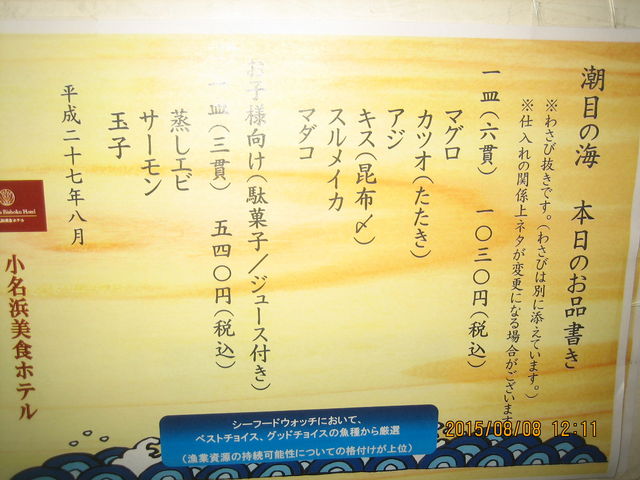 潮目の海　本日のお品書き
※わさび抜きです。（わさびは別に添えています。）
※仕入れの関係上ネタが変更になる場合がございます
一皿（六貫）　一〇三〇円（税込）
マグロ
カツオ（たたき）
アジ
キス（昆布〆）
スルメイカ
マダコ
お子様向け（駄菓子／ジュース付き）
一皿（三貫）　五四〇円（税込）
蒸しエビ
サーモン
玉子
平成二十七年八月
Bishoku Hotel
小名浜美食ホテル
シーフードウォッチにおいて、
ベストチョイス、グッドチョイスの魚種から厳選
（漁業資源の持続可能性についての格付けが上位）
2015/08/08 12:11